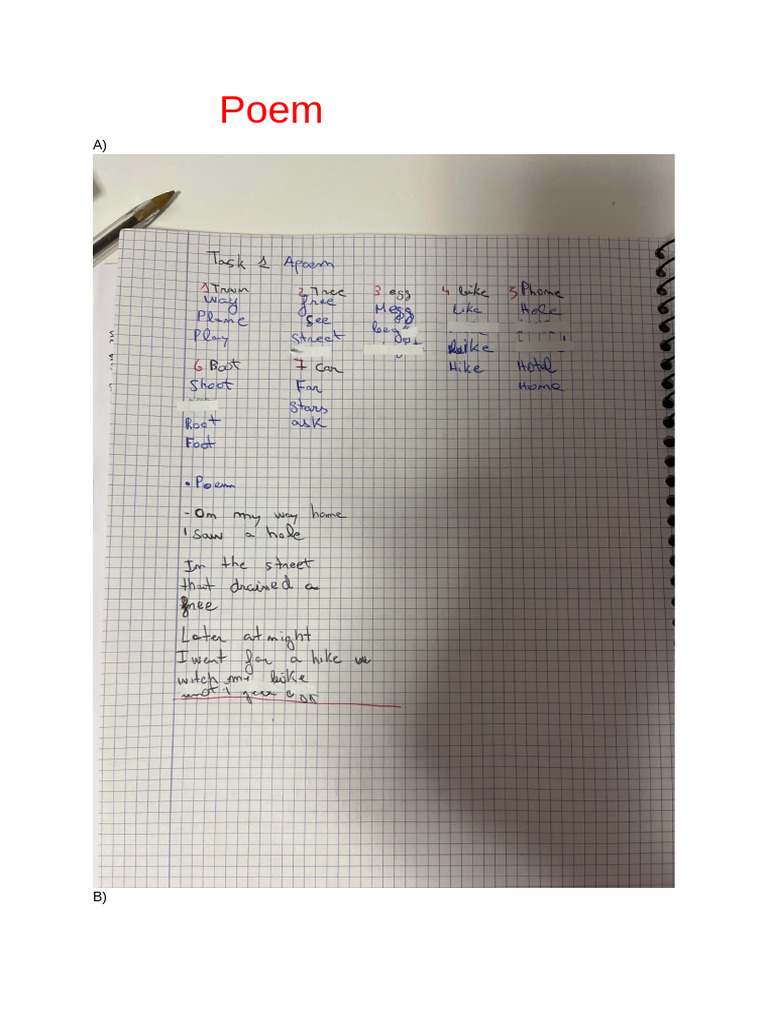 Poem
A)
Task 1 A poem
1 Train 2 Tree 3 egg 4 bike 5 Phone
Way free Megg Like Hole
Plane See beg
Play Street bike
6 Boot 7 Car Hike Hotel
Shoot Far Home
Stars
Root ask
Foot
• Poem
- On my way home
I saw a hole
In the street
that drained a
free
Later at night
I went for a hike
witch my bike
B)